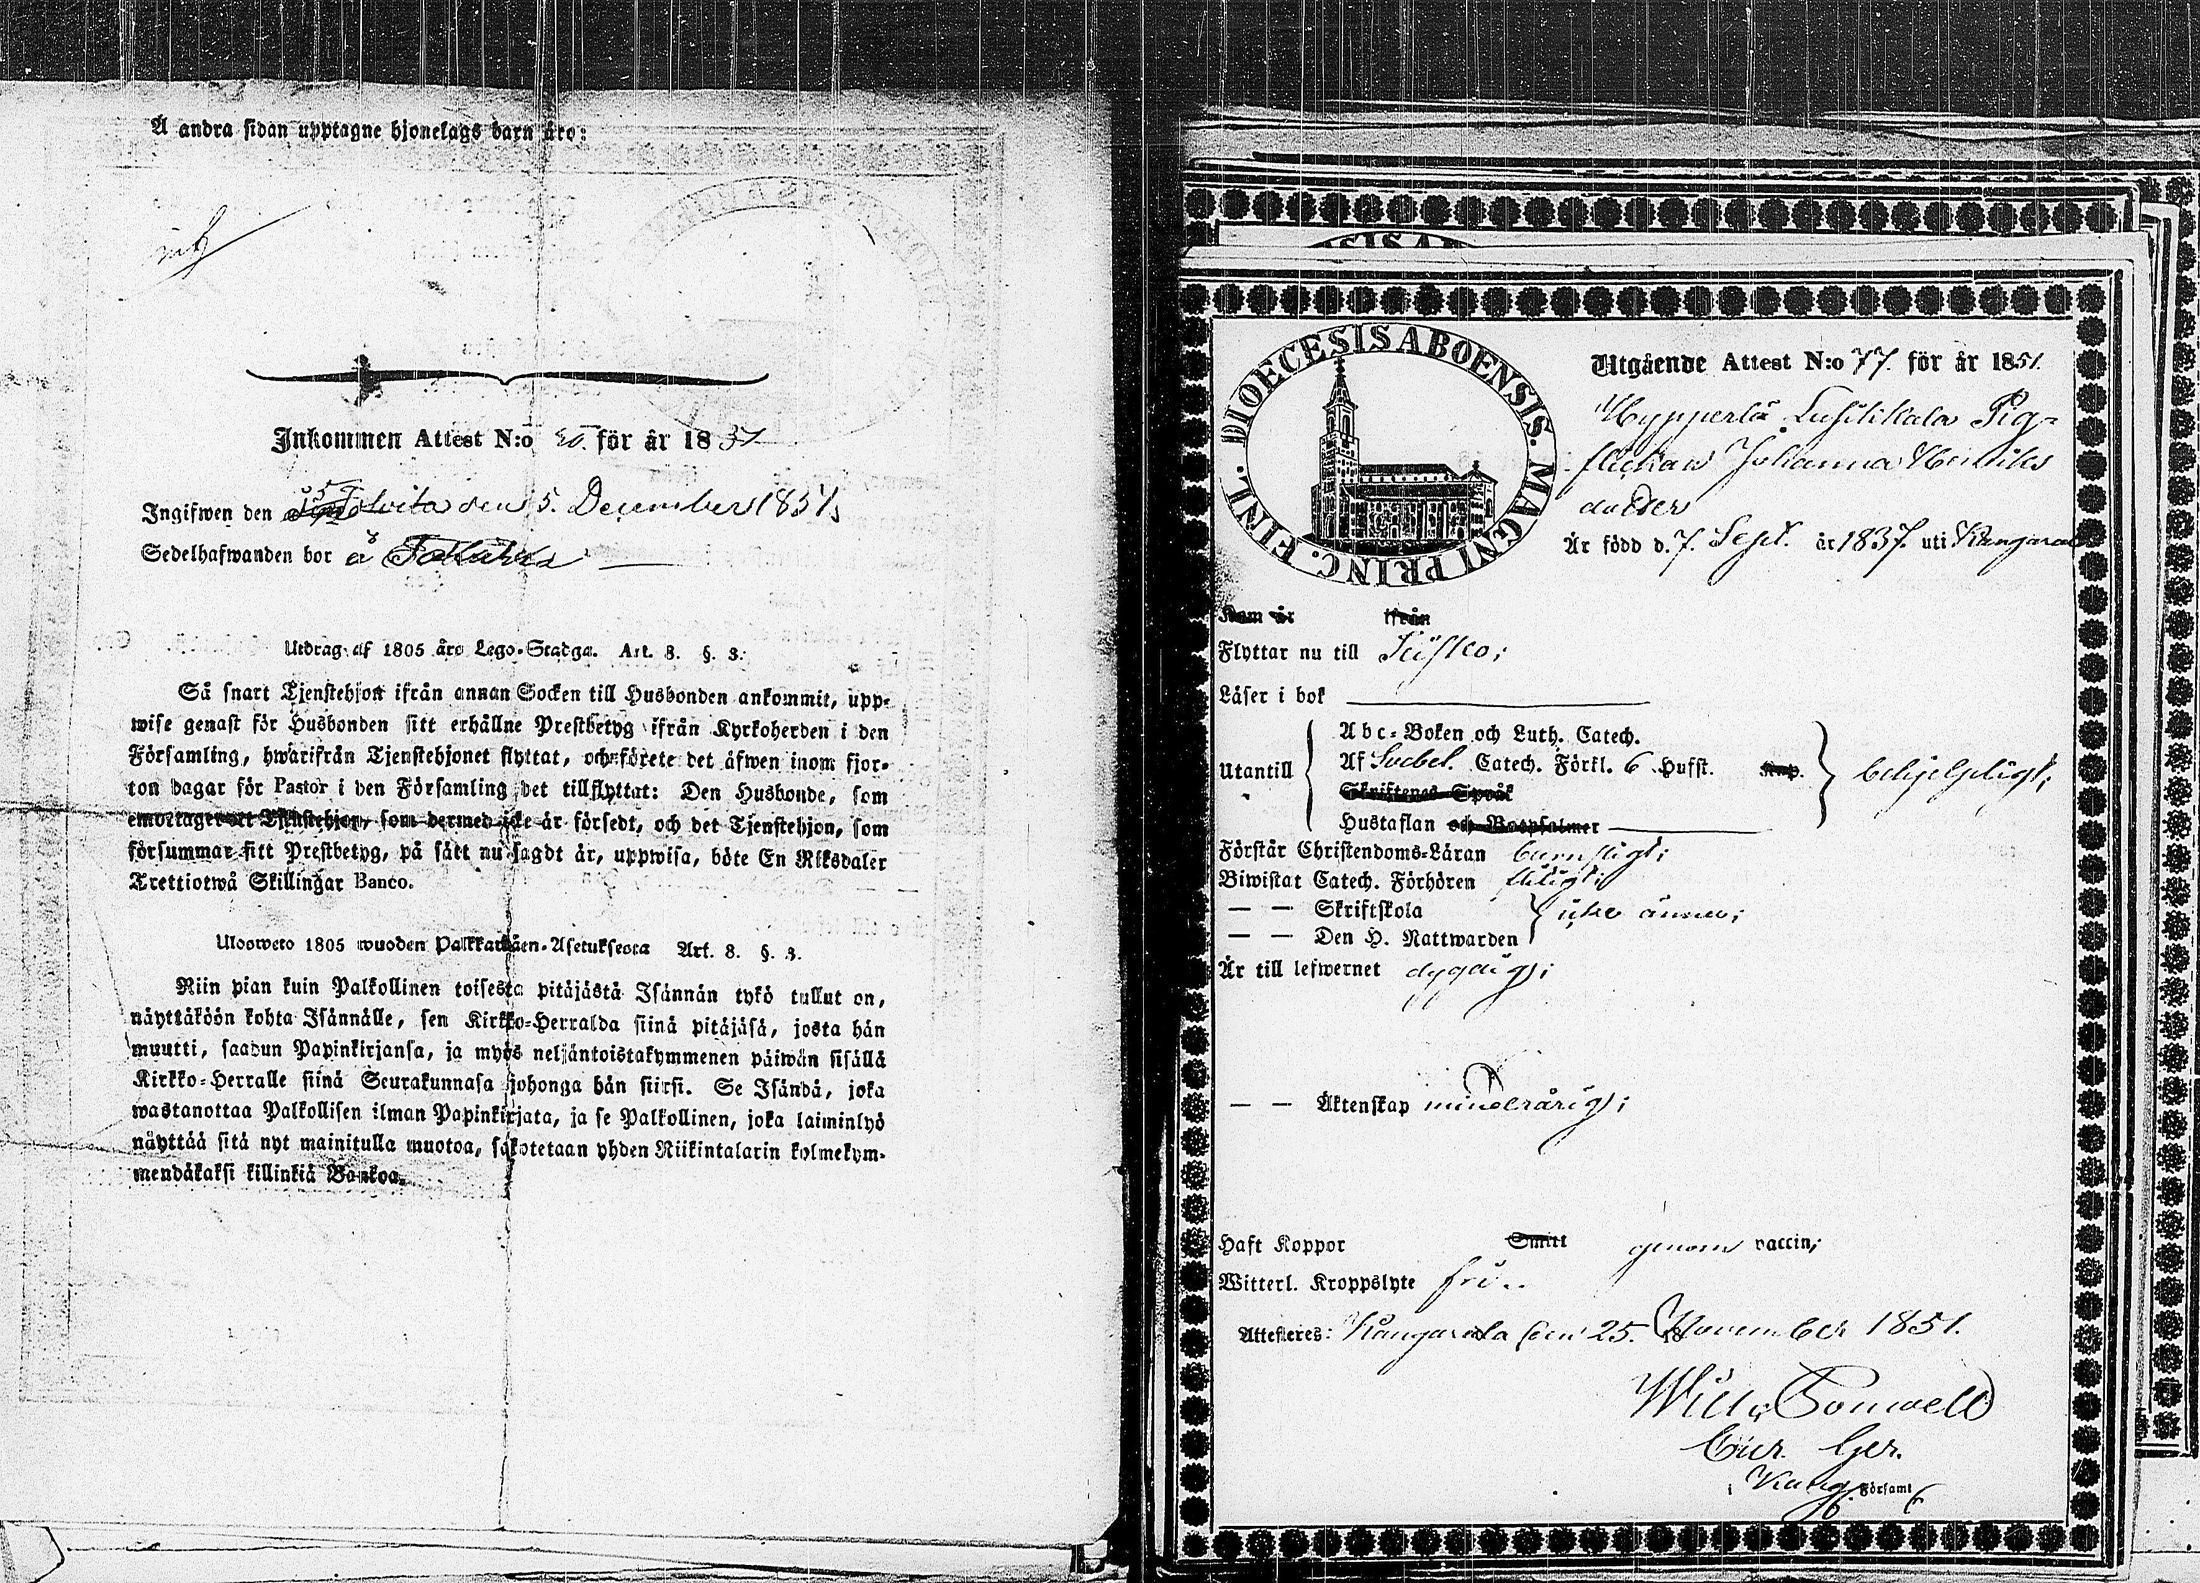 Å andra sidan upptagne hjonelags barn äro:
Inkommen Attest N:o för år 1851
Ingifwen den den 5. December 1851
Sedelhafwanden bor å
Utdrag af 1805 års Lego-Stadga. Art. 8. §. 3.
Så snart Tjenstehjon ifrån annan Socken till Husbonden ankommit, upp-
wise genast för Husbonden sitt erhållne Prestbetyg ifrån Kyrkoherden i den
Församling, hwarifrån Tjenstehjonet flyttat, och förete det äfwen inom fjor-
ton dagar för Pastor i den Församling det tillflyttat: Den Husbonde, som
emottager ett Tjenstehjon, som dermed icke är försedt, och det Tjenstehjon, som
försummar sitt Prestbetyg, på sätt nu sagdt är, uppwisa, böte En Riksdaler
Trettiotwå Skillingar Banco.
Ulosweto 1805 wuoden Palkkawäen-Asetuksesta Art. 8. §. 3.
Niin pian kuin Palkollinen toisesta pitäjästä Isännän tykö tullut on,
näyttäköön kohta Isännälle, sen Kirkko-Herralda siinä pitäjäsä, josta hän
muutti, saadun Papinkirjansa, ja myös neljäntoistakymmenen päiwän sisällä
Kirkko-Herralle siinä Seurakunnasa johonga hän siirsi. Se Isändä, joka
wastanottaa Palkollisen ilman Papinkirjata, ja se Palkollinen, joka laiminlyö
näyttää sitä nyt mainitulla muotoa, sakotetaan yhden Riikintalarin kolmekym-
mendäkaksi killinkiä Bankoa.
DIOECESIS ABOENSIS. MAGNI PRINC. FINL.
Utgående Attest N:o 77. för år 1851.
Hyppärilä Pig-
flickan Johanna Henriks
dotter
Är född d. 7. Sept. år 1837. uti Kangasala
Kom är ifrån
Flyttar nu till
Läser i bok
Utantill
Abc-Boken och Luth. Catech.
Af Svebel. Catech. Förkl. 6 Hufst. Kap. behjelpligt;
Skriftenes Språk
Hustaflan och Botpsalmer
Förstår Christendoms-Läran barnsligt;
Biwistat Catech. Förhören flitigt;
— — Skriftskola icke ännu;
— — Den H. Nattwarden
Är till lefwernet dygdig;
— — Äktenskap minderårig;
Haft Koppor Smitt genom vaccin;
Witterl. Kroppslyte fri.
Attesteres: Kangasala den 25. November 1851.
Kang. Församl